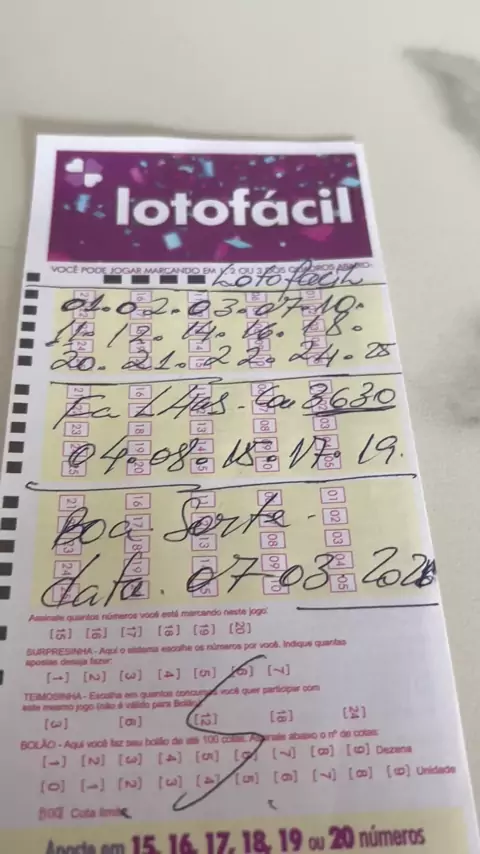 lotofácil
VOCÊ PODE JOGAR MARCANDO EM 1, 2 OU 3 DOS QUADROS ABAIXO:
Lotofácil
01.02.03.07.10.
11.12.14.16.18.
20.21.22.24.25
3630
04.08.15.17.19.
Boa Sorte
data. 07-03-2026
Assinale quantos números você está marcando neste jogo:
[15] [16] [17] [18] [19] [20]
SURPRESINHA - Aqui o sistema escolhe os números por você. Indique quantas
apostas deseja fazer:
[1] [2] [3] [4] [5] [6] [7]
TEIMOSINHA - Escolha em quantos concursos você quer participar com
este mesmo jogo (não é válido para Bolão)
[3] [6] [12] [18] [24]
BOLÃO - Aqui você faz seu bolão de até 100 cotas. Assinale abaixo o nº de cotas:
[1] [2] [3] [4] [5] [6] [7] [8] [9] Dezena
[0] [1] [2] [3] [4] [5] [6] [7] [8] [9] Unidade
Cota limite
Aposte em 15, 16, 17, 18, 19 ou 20 números